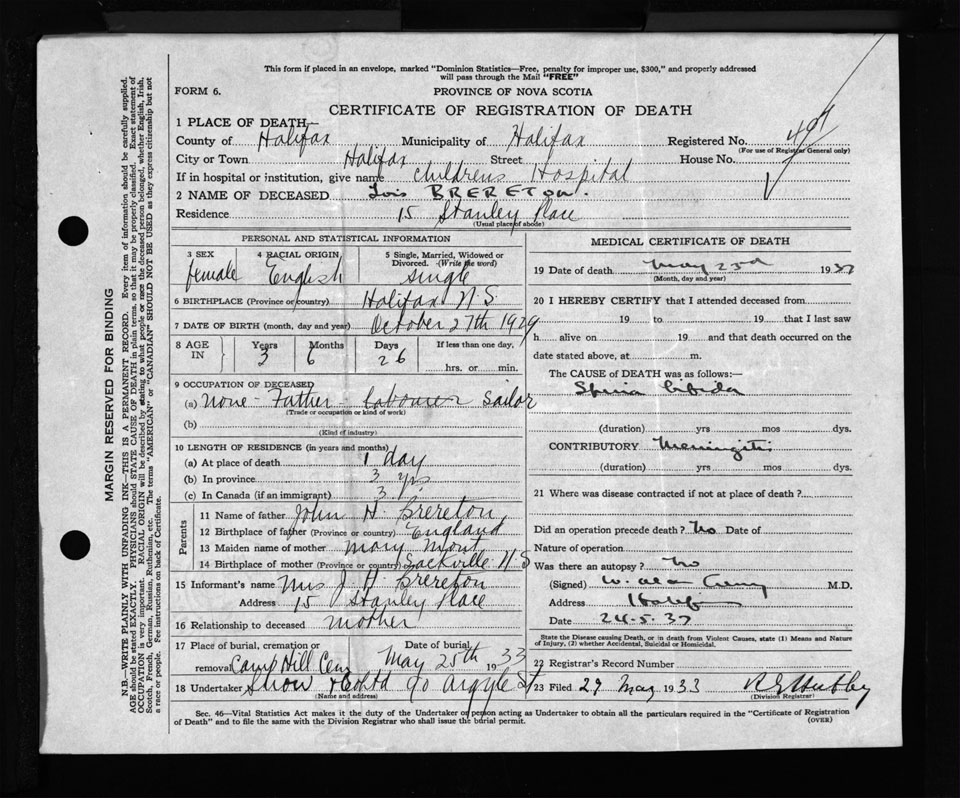 This form if placed in an envelope, marked "Dominion Statistics—Free, penalty for improper use, $300," and properly addressed
will pass through the Mail "FREE"
FORM 6.
PROVINCE OF NOVA SCOTIA
CERTIFICATE OF REGISTRATION OF DEATH
1 PLACE OF DEATH—
County of Halifax Municipality of Halifax Registered No.
(For use of Registrar General only)
City or Town Halifax Street House No.
If in hospital or institution, give name Childrens Hospital
2 NAME OF DECEASED Lois BRERETON.
Residence 15 Stanley Place
(Usual place of abode)
PERSONAL AND STATISTICAL INFORMATION
3 SEX 4 RACIAL ORIGIN 5 Single, Married, Widowed or
Divorced. (Write the word)
female English single
6 BIRTHPLACE (Province or country) Halifax N.S
7 DATE OF BIRTH (month, day and year) October 27th 1929
8 AGE IN Years Months Days If less than one day,
3 6 26 hrs. or min.
9 OCCUPATION OF DECEASED
(a) none - Father - labourer sailor
(Trade or occupation or kind of work)
(b)
(Kind of industry)
10 LENGTH OF RESIDENCE (in years and months)
(a) At place of death 1 day
(b) In province 3 yrs
(c) In Canada (if an immigrant) 3 yrs
Parents
11 Name of father John H. Brereton
12 Birthplace of father (Province or country) England
13 Maiden name of mother Mary
14 Birthplace of mother (Province or country) Sackville N S
15 Informant's name Mrs J. H. Brereton
Address 15 Stanley Place
16 Relationship to deceased mother
17 Place of burial, cremation or Date of burial,
removal Camp Hill Cem May 25th 1933
18 Undertaker Snow & Co Ltd 90 Argyle St
(Name and address)
MEDICAL CERTIFICATE OF DEATH
19 Date of death May 23rd 193
(Month, day and year)
20 I HEREBY CERTIFY that I attended deceased from
19 to 19 that I last saw
h alive on 19 and that death occurred on the
date stated above, at m.
The CAUSE of DEATH was as follows:—
Spina bifida
(duration) yrs mos dys.
CONTRIBUTORY Meningitis
(duration) yrs mos dys.
21 Where was disease contracted if not at place of death?
Did an operation precede death? No Date of
Nature of operation
Was there an autopsy? No
(Signed) W. Alan M.D.
Address
Date 24-5-
State the Disease causing Death, or in death from Violent Causes, state (1) Means and Nature
of Injury, (2) whether Accidental, Suicidal or Homicidal.
22 Registrar's Record Number
23 Filed 29 May 1933
(Division Registrar)
Sec. 46—Vital Statistics Act makes it the duty of the Undertaker or person acting as Undertaker to obtain all the particulars required in the "Certificate of Registration
of Death" and to file the same with the Division Registrar who shall issue the burial permit.
(OVER)
MARGIN RESERVED FOR BINDING
N.B.—WRITE PLAINLY WITH UNFADING INK—THIS IS A PERMANENT RECORD. Every item of information should be carefully supplied.
AGE should be stated EXACTLY. PHYSICIANS should STATE CAUSE OF DEATH in plain terms, so that it may be properly classified. Exact statement of
OCCUPATION is very important. RACIAL ORIGIN will be described by stating to what people or race the deceased person belonged, whether English, Irish,
Scotch, French, German, Russian, Ruthenian, etc. The terms "AMERICAN" or "CANADIAN" SHOULD NOT BE USED as they express citizenship but not
a race or people. Fee instructions on back of Certificate.